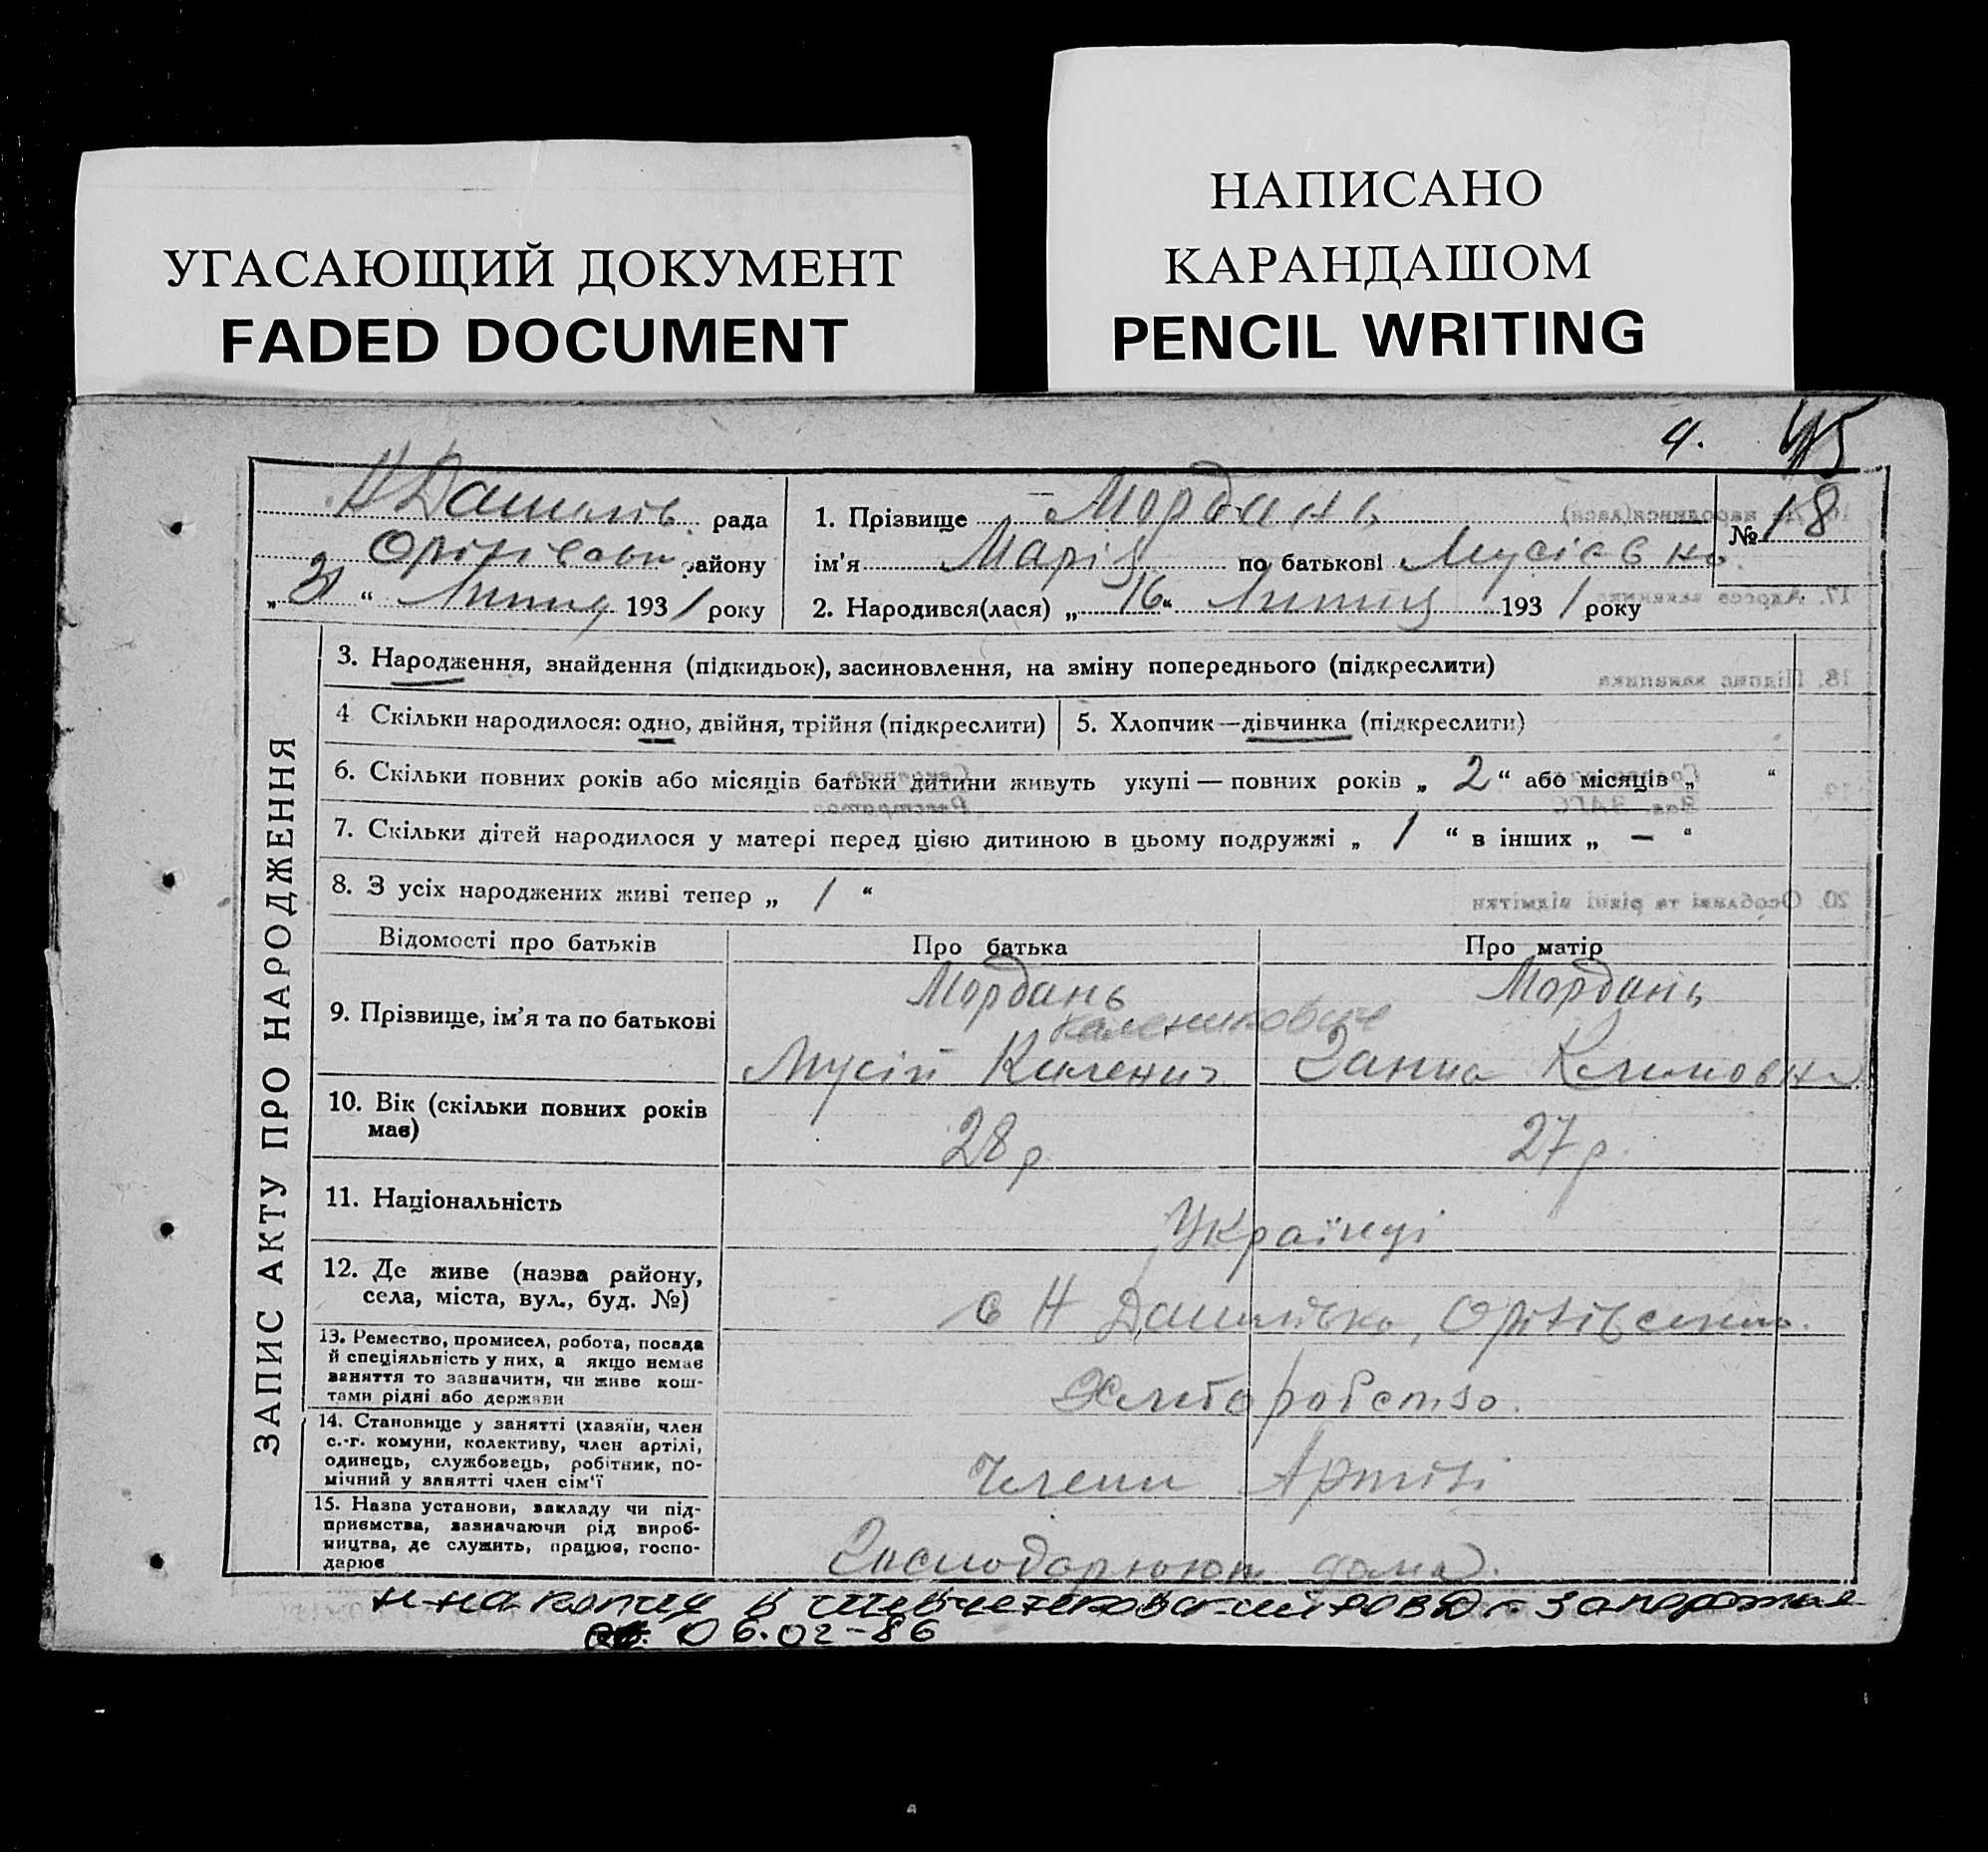 УГАСАЮЩИЙ ДОКУМЕНТ
FADED DOCUMENT
НАПИСАНО
КАРАНДАШОМ
PENCIL WRITING
4. 45
Н Дашилів. рада
району
„ 31 “ Липня 1931 року
1. Прізвище Мордань
ім'я Марія по батькові Мусієвна
2. Народився(лася) „ 16 “ Липня 1931 року
№ 18
ЗАПИС АКТУ ПРО НАРОДЖЕННЯ
3. Народження, знайдення (підкидьок), засиновлення, на зміну попереднього (підкреслити)
4 Скільки народилося: одно, двійня, трійня (підкреслити)
5. Хлопчик—дівчинка (підкреслити)
6. Скільки повних років або місяців батьки дитини живуть укупі — повних років „ 2 “ або місяців „ “
7. Скільки дітей народилося у матері перед цією дитиною в цьому подружжі „ 1 “ в інших „ — “
8. З усіх народжених живі тепер „ 1 “
Відомості про батьків Про батька Про матір
9. Прізвище, ім'я та по батькові
Мордань Мордань
Каленикович
Мусій Каленич Ганна Климовна
10. Вік (скільки повних років
має)
28 р 27 р.
11. Національність
Українці
12. Де живе (назва району,
села, міста, вул., буд. №)
с Н
13. Ремество, промисел, робота, посада
й спеціяльність у них, а якщо немає
заняття то зазначити, чи живе кош-
тами рідні або держави
Хліборобство.
14. Становище у занятті (хазяїн, член
с.-г. комуни, колективу, член артілі,
одинець, службовець, робітник, по-
мічний у занятті член сім'ї
Члени Артілі
15. Назва установи, закладу чи під-
приємства, зазначаючи рід вироб-
ництва, де служить, працює, госпо-
дарює
Господарюють дома.
на копия в Шевченковский РОВД г Запорожья
06.02-86